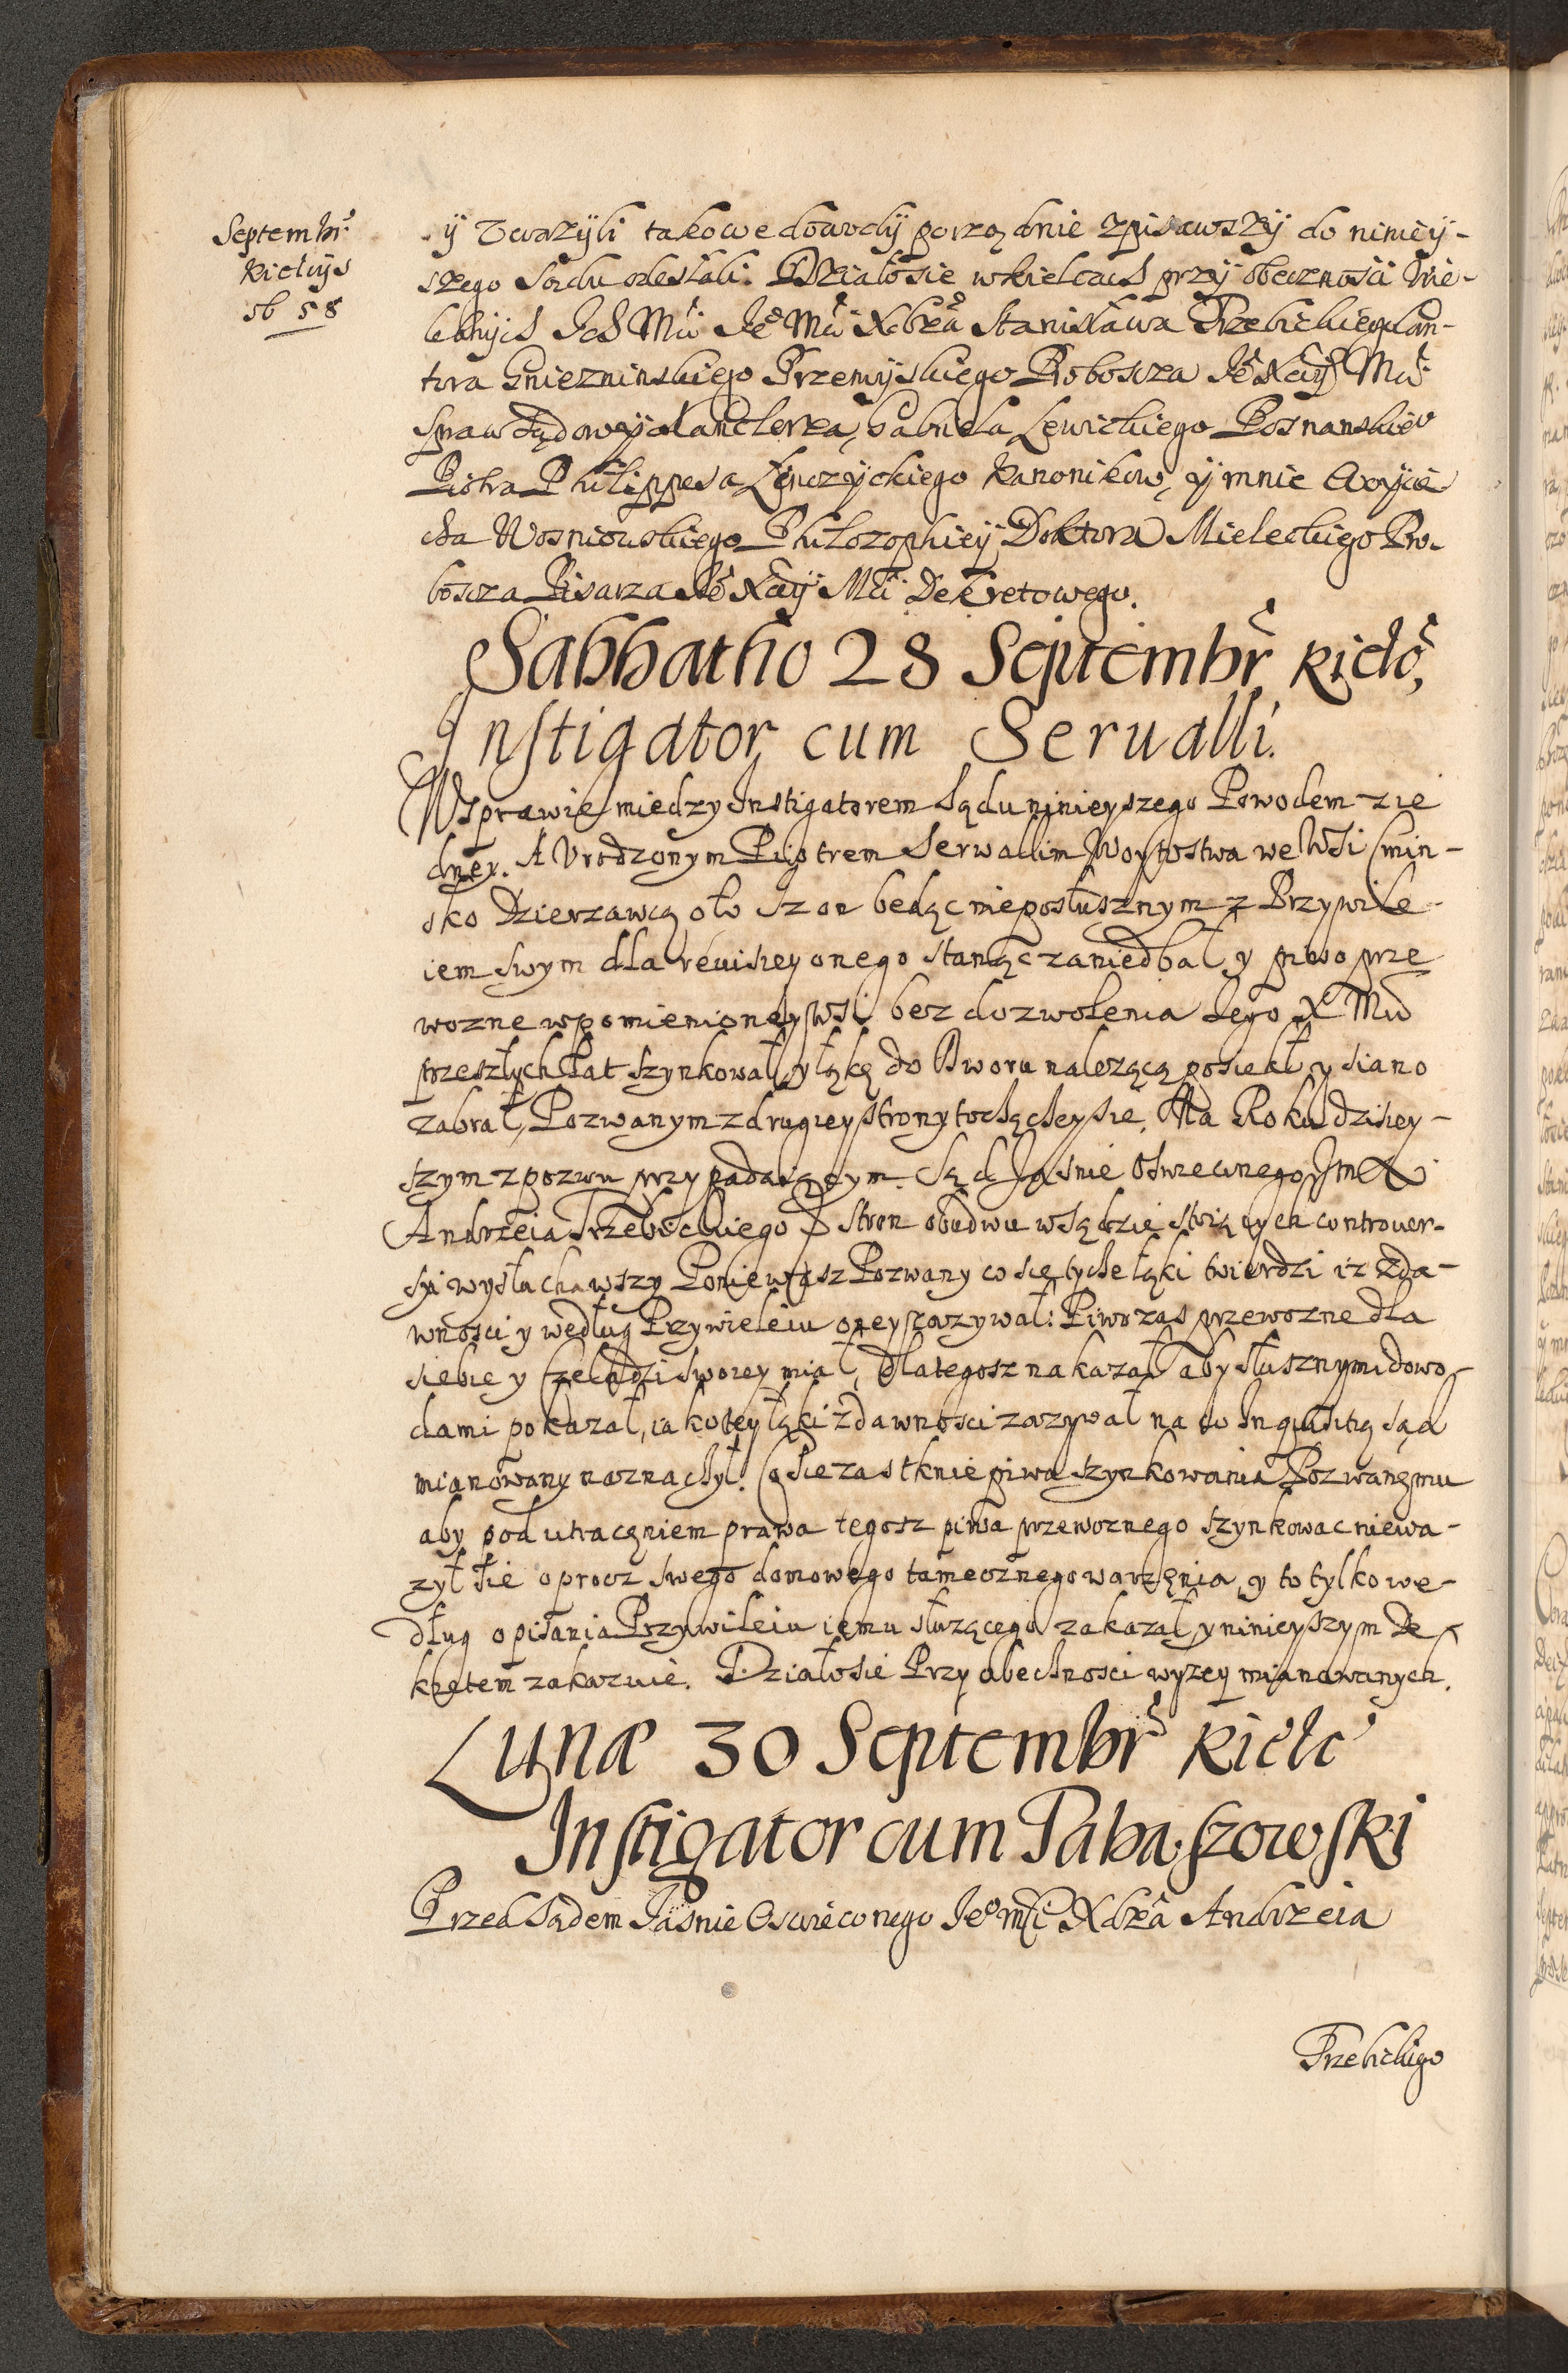 Septembr
Kielcijs
58
ÿ Uważÿli takowe dowodÿ porządnie zpisawszÿ do niniėÿ-
szego Sądu odesłali. Działosie w kielcach przÿ obecznośći Wie-
lebnÿch Ich Mći Je° Mći Xdza Stanisława Trzebickiego Kan-
tora Gniezninskiego Przemÿskiego Proboscza Je° Xcÿ Mći
Spraw Sądowÿch Kanclerza, Gabriela Lewickiego Posnanskieo
Piotra Philippesa Lęnczÿckiego Kanonikow, ÿ mnie Woÿcie
cha Wosniowskiego Philozophieÿ Doktora Mieleckiego Pro-
boscza Pisarza Je° Xcÿ Mći Dekretowego.
Sabbatho 28 Septembr Kielc,
Instigator cum Serualli.
W sprawie miedzy Instigatorem Sądu ninieyszego Powodem z ie
dney. A Vrodzonym Piotrem Serwallim Woytostwa we Wsi Cmin-
sko Dzierzawcą oto isz on będąc nieposłusznym z Przywile-
iem swym dla reuisiey onego stanąć zaniedbał y piwo prze
wozne w pomienioney wsi bez dozwolenia Jego X Mći
przeszłych Lat szynkował y łąkę do Dworu nalezącą posiekł y siano
zabrał, Pozwanym z drugiey strony tocząchey sie. Na Roku dzisiey-
szym z pozwu przypadaiącym. Sąd Jasnie Oswieconego Jm X
Andrzeia Trzebickiego stron obudwu w sądzie stoiących controuer-
syi wysłuchawszy Poniewasz Pozwany co się tycze łąki twierdzi iz zda-
wnosci y według Przywileiu oney zazywał: Piwo zas przewozne dla
siebie y Czeladzi swoiey miał, Dlategosz nakazał aby słusznymi dowo-
dami pokazał, iako tey łąki z dawnosci zazywał na co Inquisitią sąd
mianowany naznaczył. Co sie zas tknie piwa szynkowania Pozwanemu
aby pod utraceniem prawa tegosz piwa przewoznego szynkowac niewa-
zył sie oprocz swego domowego tamecznego warzęnia, y to tylko we-
dług opisania Przywileiu iemu słuzącego zakazał y ninieyszym De
kretem zakazuie. Działosie Przy obecznosci wyzey mianowanych.
Lunæ 30 Septembr Kielc
Instigator cum Tabaszowski
Przed Sądem Jasnie Oswieconego Je° mści Xdza Andrzeia
Trzebickiego